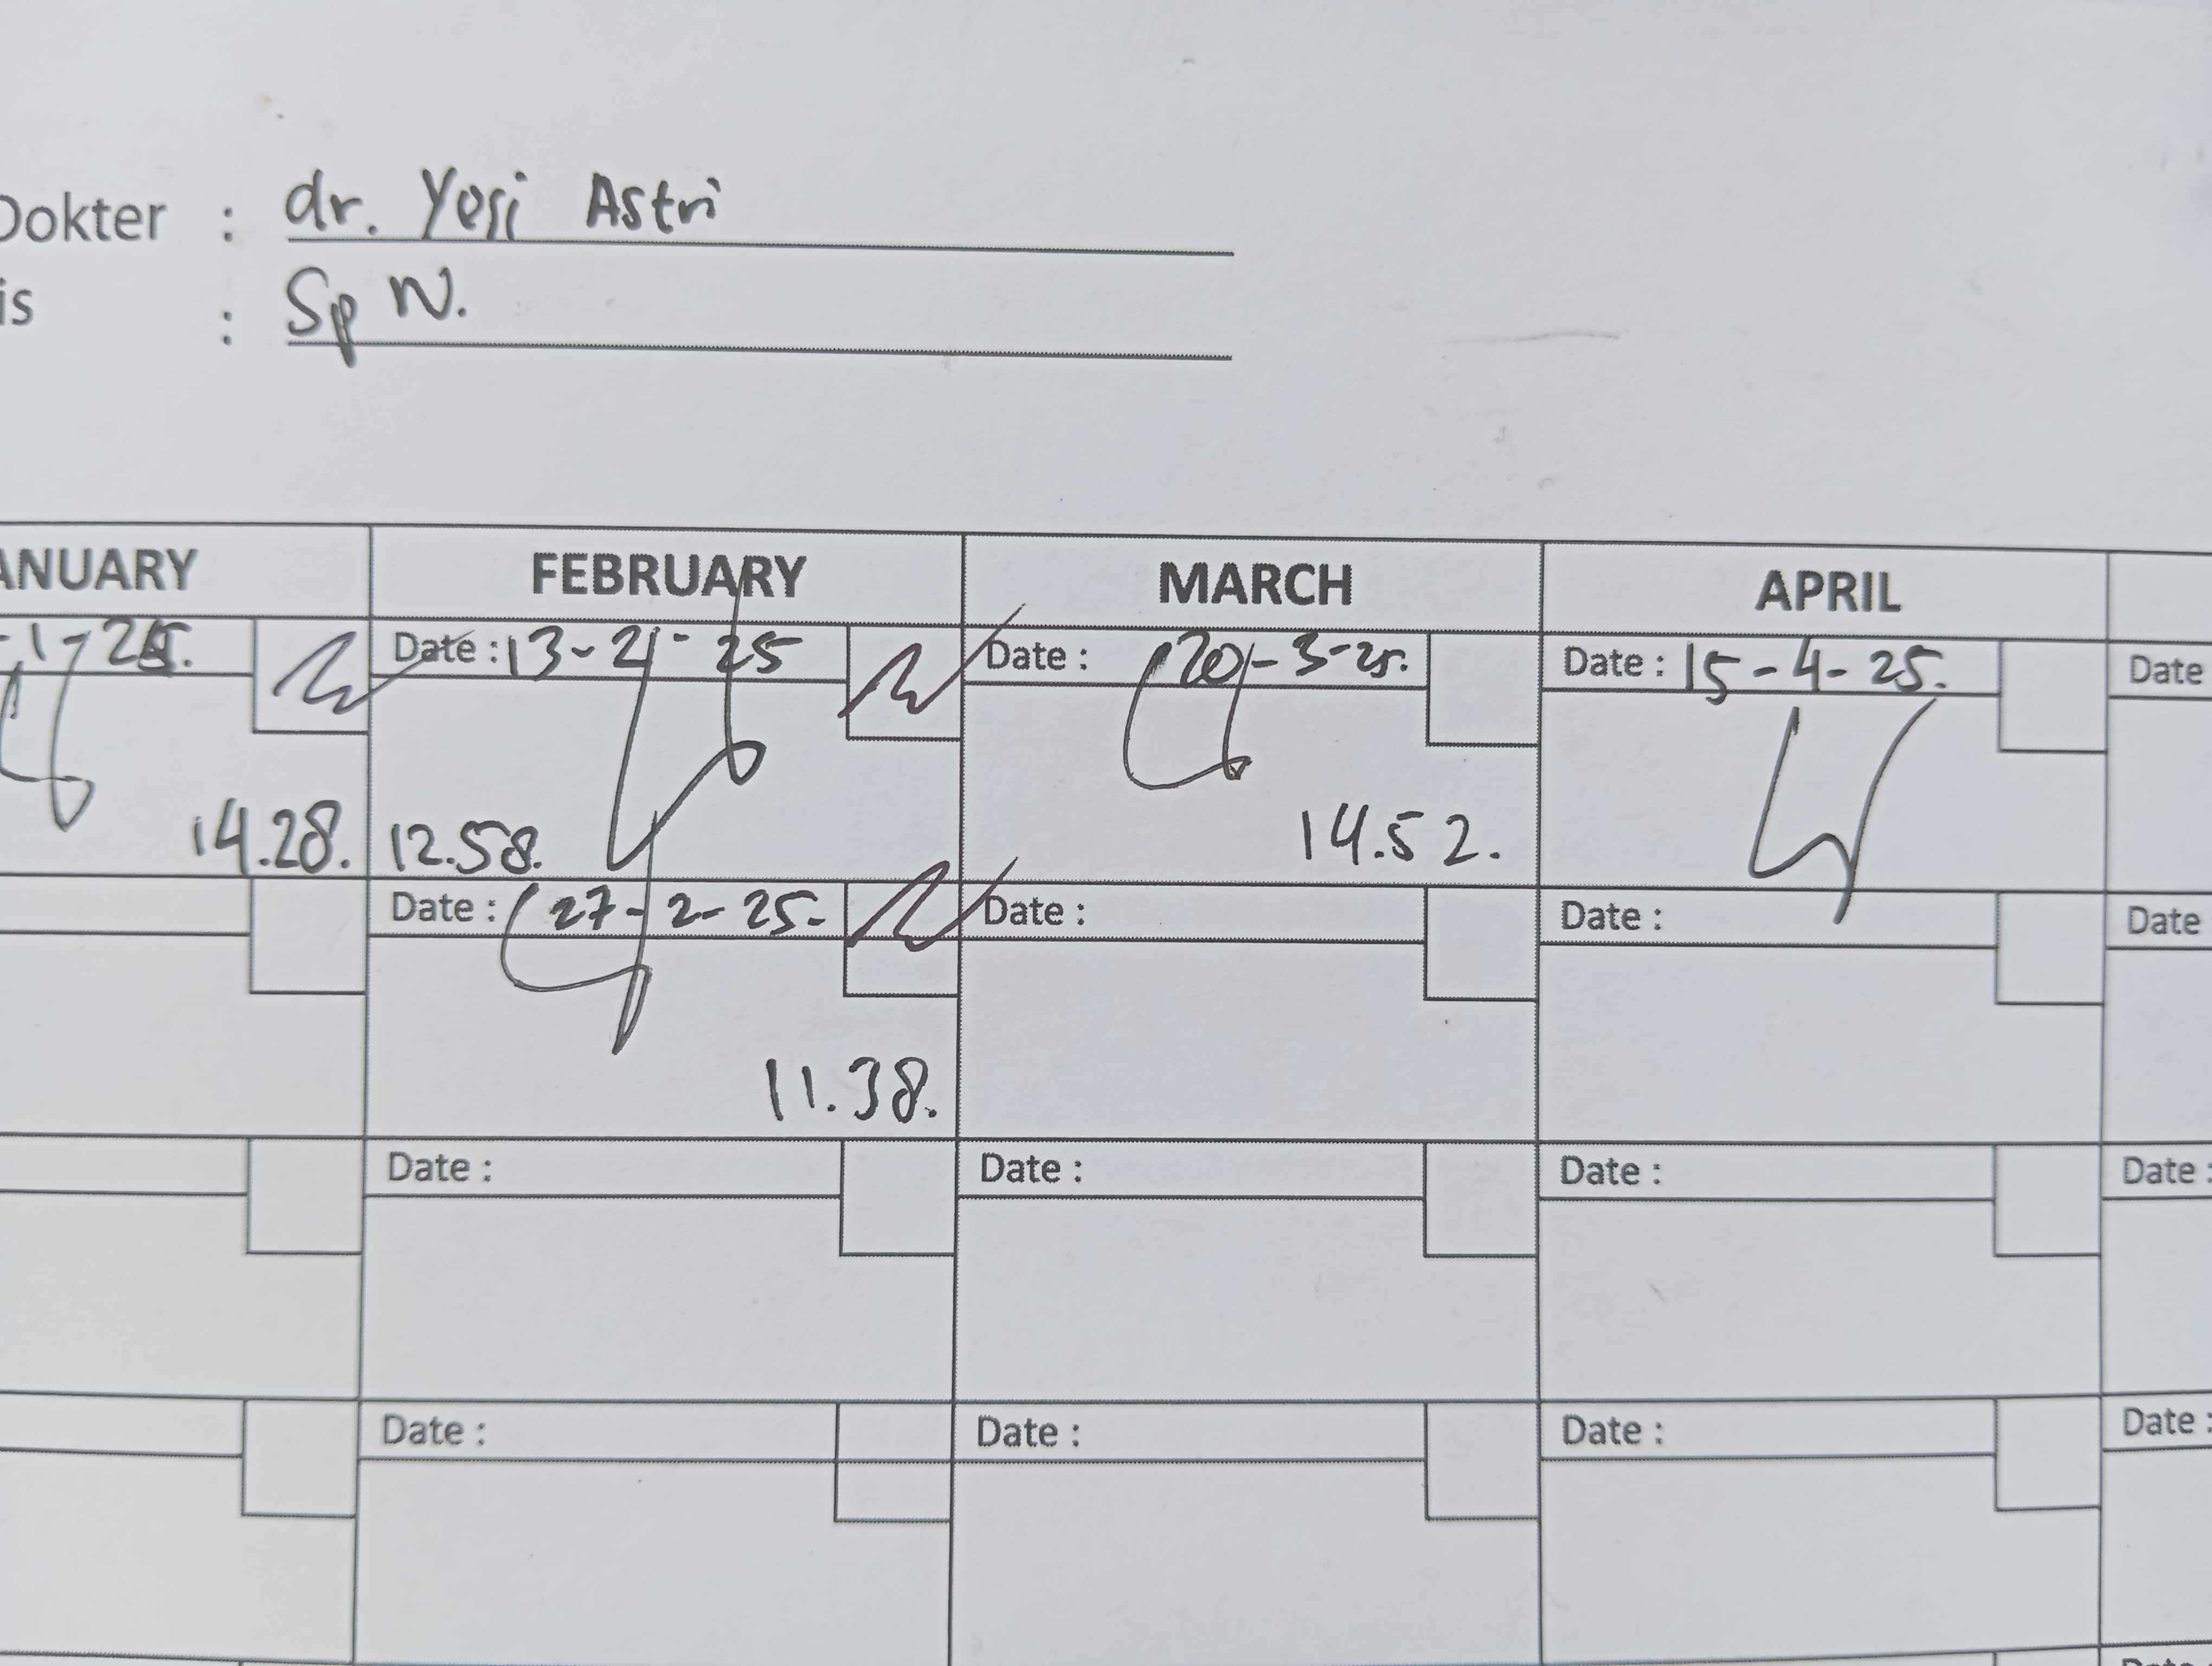 Dokter : dr. Yesi Astri
is : Sp N.
ANUARY FEBRUARY MARCH APRIL
-1-25. Date : 13-2-25 Date : 20-3-25. Date : 15-4-25. Date
14.28. 12.58. 14.52.
Date : 27-2-25- Date : Date : Date
11.38.
Date : Date : Date : Date :
Date : Date : Date : Date :